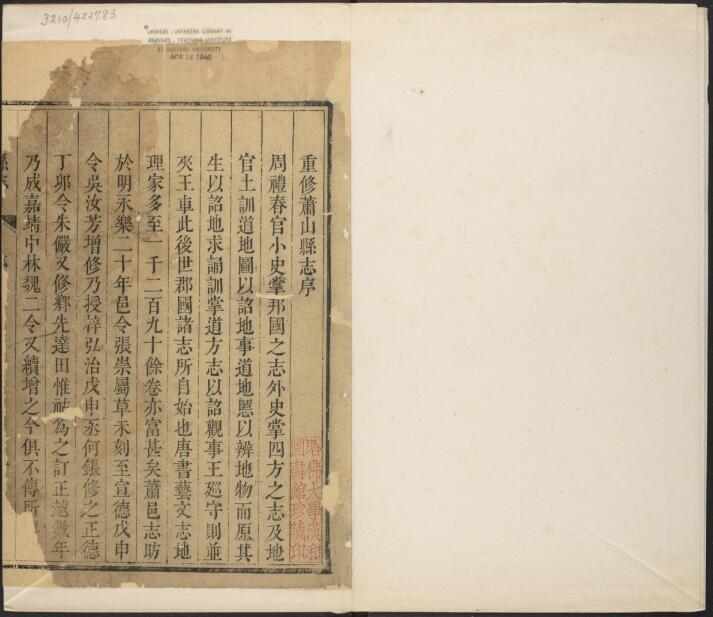 3210/4227.83
CHINESE - JAPANESE LIBRARY OF
HARVARD - YENCHING INSTITUTE
AT HARVARD UNIVERSITY
APR 12 1940
重修蕭山縣志序
周禮春官小史掌邦國之志外史掌四方之志及地
官土訓道地圖以詔地事道地慝以辨地物而原其
生以詔地求誦訓掌道方志以詔觀事王廵守則並
夾王車此後世郡國諸志所自始也唐書藝文志地
理家多至一千二百九十餘卷亦富甚矣蕭邑志昉
於明永樂二十年邑令張崇屬草未刻至宣德戊申
令吳汝芳增修乃授梓弘治戊申丞何鋹修之正德
丁卯令朱儼又修鄉先達田惟祜為之訂正越數年
乃成嘉靖中林魏二令又續增之今俱不傳所
縣志
哈佛大學漢和
圖書館珍藏印